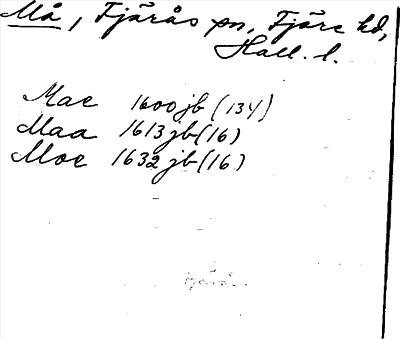 Må, Fjärås sn, Fjäre hd,
Hall. l.
Mae 1600 jb (134)
Maa 1613 jb (16)
Moe 1632 jb (16)